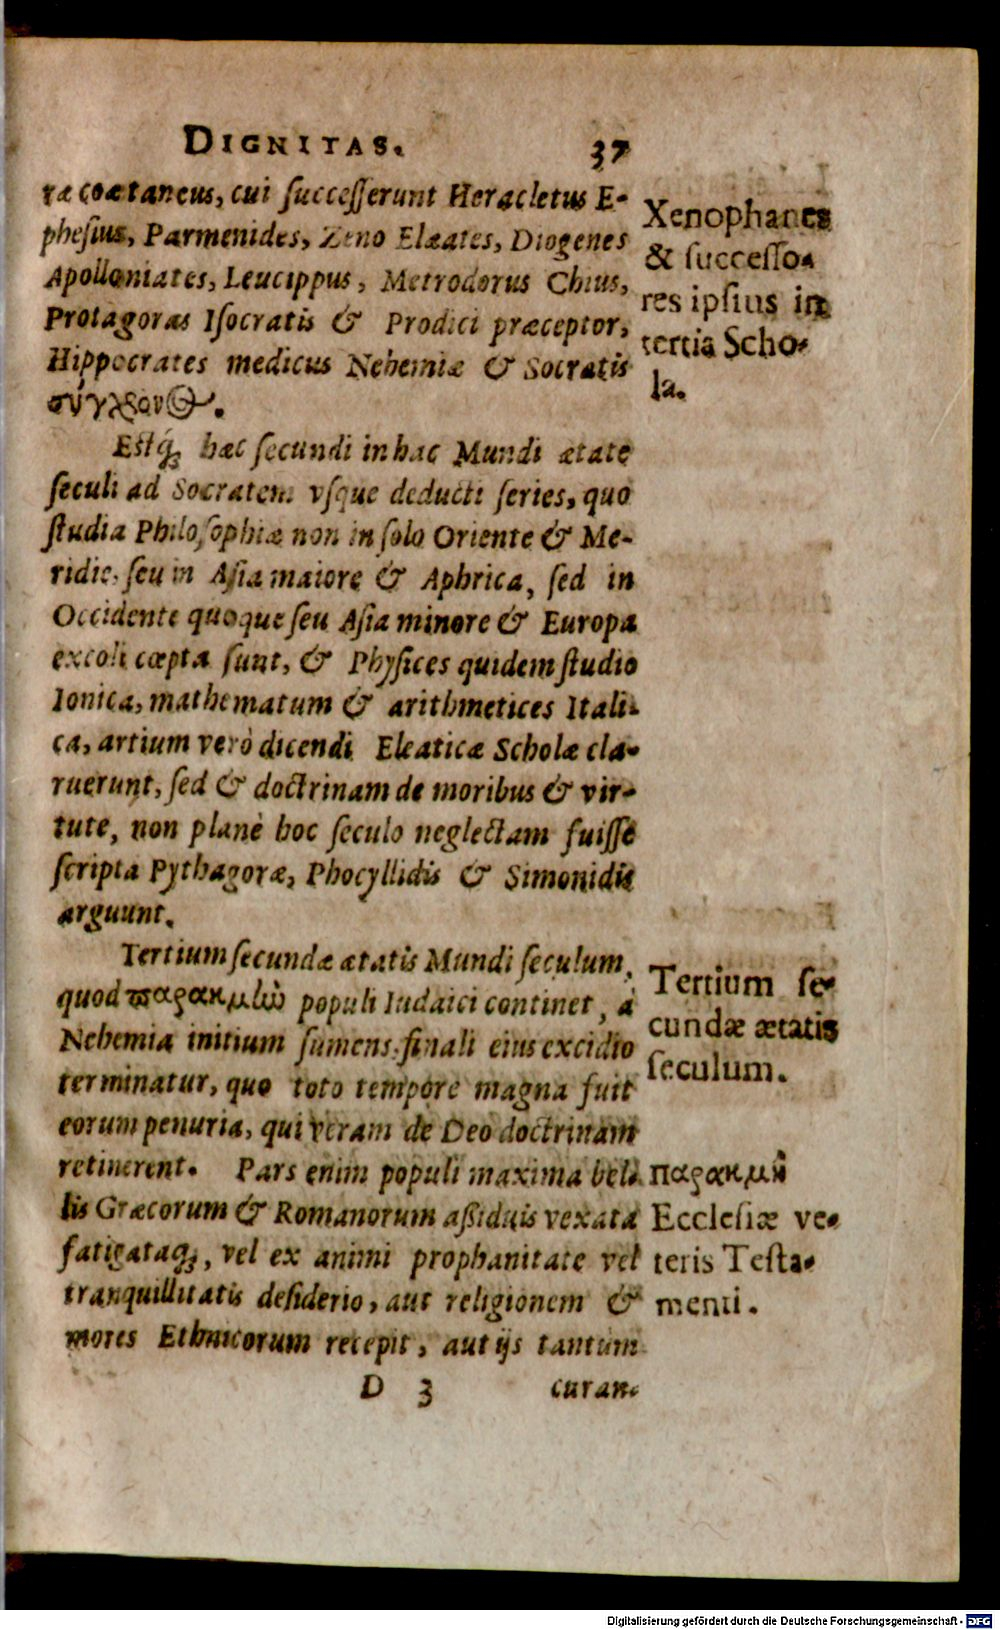 DIGNITAS. 37
ræ coætaneus, cui ſucceſſerunt Heracletus E-
pheſius, Parmenides, Zeno Elæates, Diogenes
Apolloniates, Leucippus, Metrodorus Chius,
Protagoras Iſocratis & Prodici præceptor,
Hippocrates medicus Nehemiæ & Socratis
σύγχρονος.
Xenophanes
& ſucceſſo-
res ipſius in
tertia Scho-
la.
Eſtq́; hæc ſecundi in hac Mundi ætate
ſeculi ad Socratem vſque deducti ſeries, quo
ſtudia Philoſophiæ non in ſolo Oriente & Me-
ridie, ſeu in Aſia maiore & Aphrica, ſed in
Occidente quoque ſeu Aſia minore & Europa
excoli cœpta ſunt, & Phyſices quidem ſtudio
Ionica, mathematum & arithmetices Itali-
ca, artium verò dicendi Eleaticæ Scholæ cla-
ruerunt, ſed & doctrinam de moribus & vir-
tute, non planè hoc ſeculo neglectam fuiſſe
ſcripta Pythagoræ, Phocyllidis & Simonidis
arguunt.
Tertium ſecundæ ætatis Mundi ſeculum,
quod παρακμὴν populi Iudaici continet, à
Nehemia initium ſumens, finali eius excidio
terminatur, quo toto tempore magna fuit
eorum penuria, qui veram de Deo doctrinam
retinerent. Pars enim populi maxima bel-
lis Græcorum & Romanorum aßiduis vexata
fatigataq;, vel ex animi prophanitate vel
tranquillitatis deſiderio, aut religionem &
mores Ethnicorum recepit, aut ijs tantum
Tertium ſe-
cundæ ætatis
ſeculum.
παρακμὴ
Eccleſiæ ve-
teris Teſta-
menti.
D 3 curan-
Digitalisierung gefördert durch die Deutsche Forschungsgemeinschaft - DFG